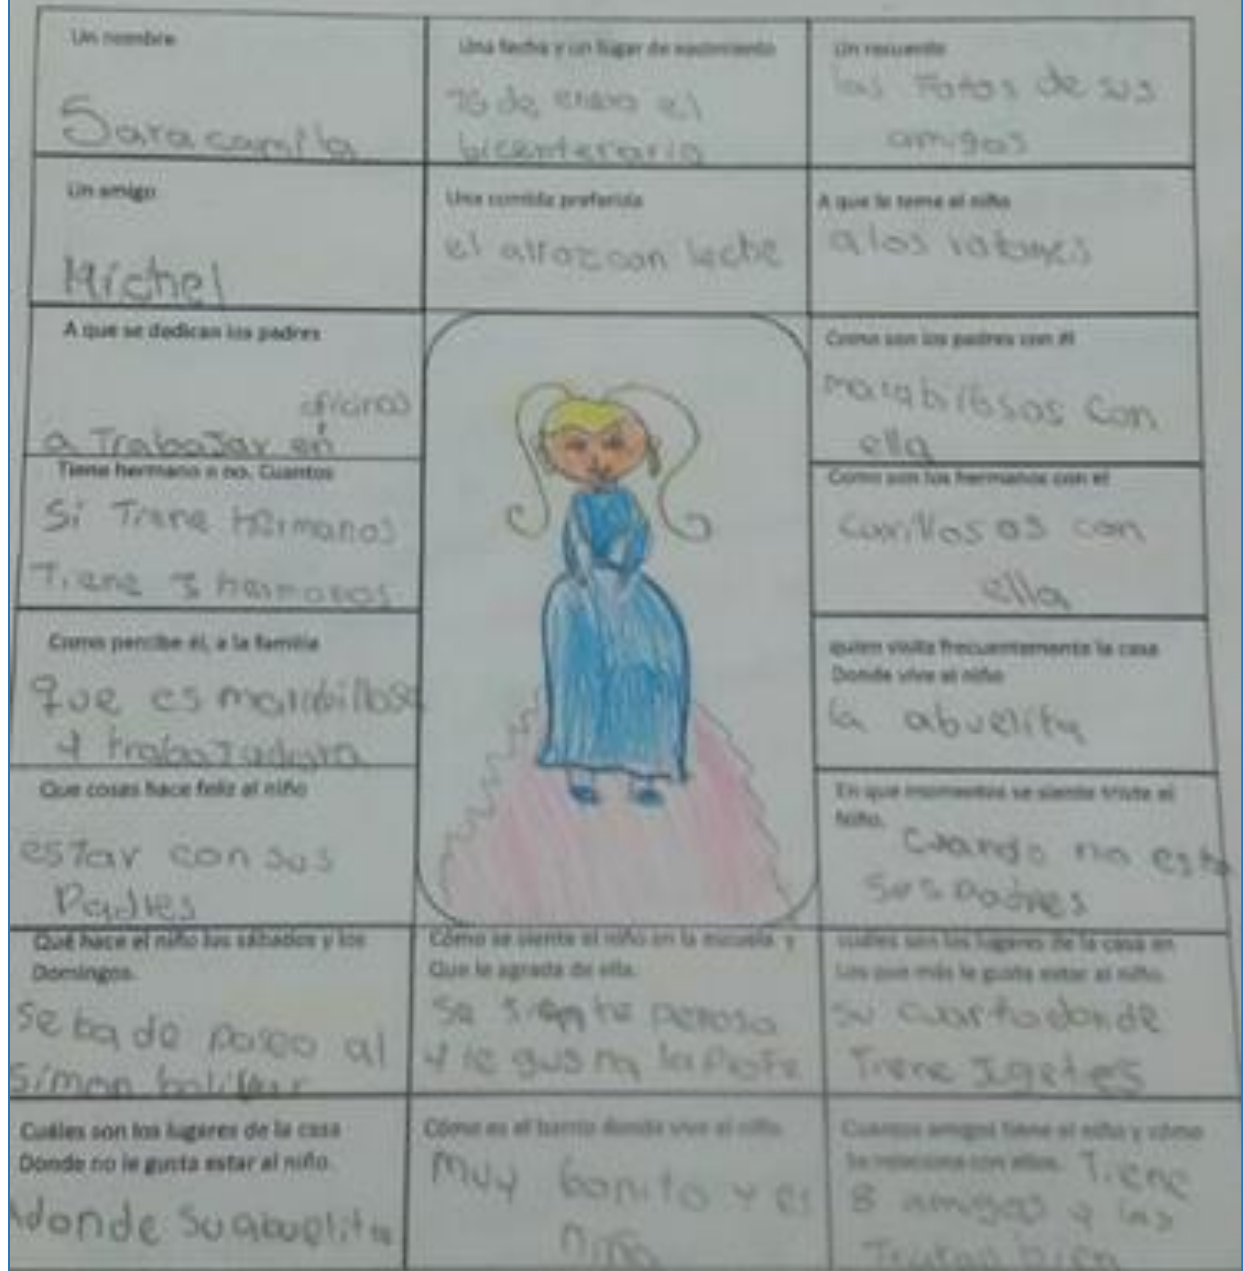 Un nombre
Sara camila
Una fecha y un lugar de nacimiento
16 de enero el
bicentenario
Un recuerdo
las Fotos de sus
amigos
Un amigo
Michel
Una comida preferida
el arroz con leche
A que le teme el niño
a los ratones
A que se dedican los padres
oficinas
a Trabajar en
Como son los padres con él
marabillosos con
ella
Tiene hermano o no. Cuantos
Si Tiene hermanos
Tiene 3 hermanos
Como son los hermanos con el
con
ella
Como percibe él, a la familia
que es marabillosa
y trabajadora
quien visita frecuentemente la casa
Donde vive el niño
la abuelita
Que cosas hace feliz al niño
estar con sus
Padres
En que momentos se siente triste el
Niño.
Cuando no esta
sus padres
Qué hace el niño los sábados y los
Domingos.
se ba de paseo al
Simon bolivar
Cómo se siente el niño en la escuela y
Que le agrada de ella.
se
y le la Profe
cuáles son los lugares de la casa en
Los que más le gusta estar al niño.
su cuarto donde
Tiene Jugetes
Cuáles son los lugares de la casa
Donde no le gusta estar al niño.
Adonde su abuelita
Cómo es el barrio donde vive el niño
Muy bonito y el
niño
Cuantos amigos tiene el niño y cómo
Se relaciona con ellos. Tiene
8 amigos y los
Tratan bien